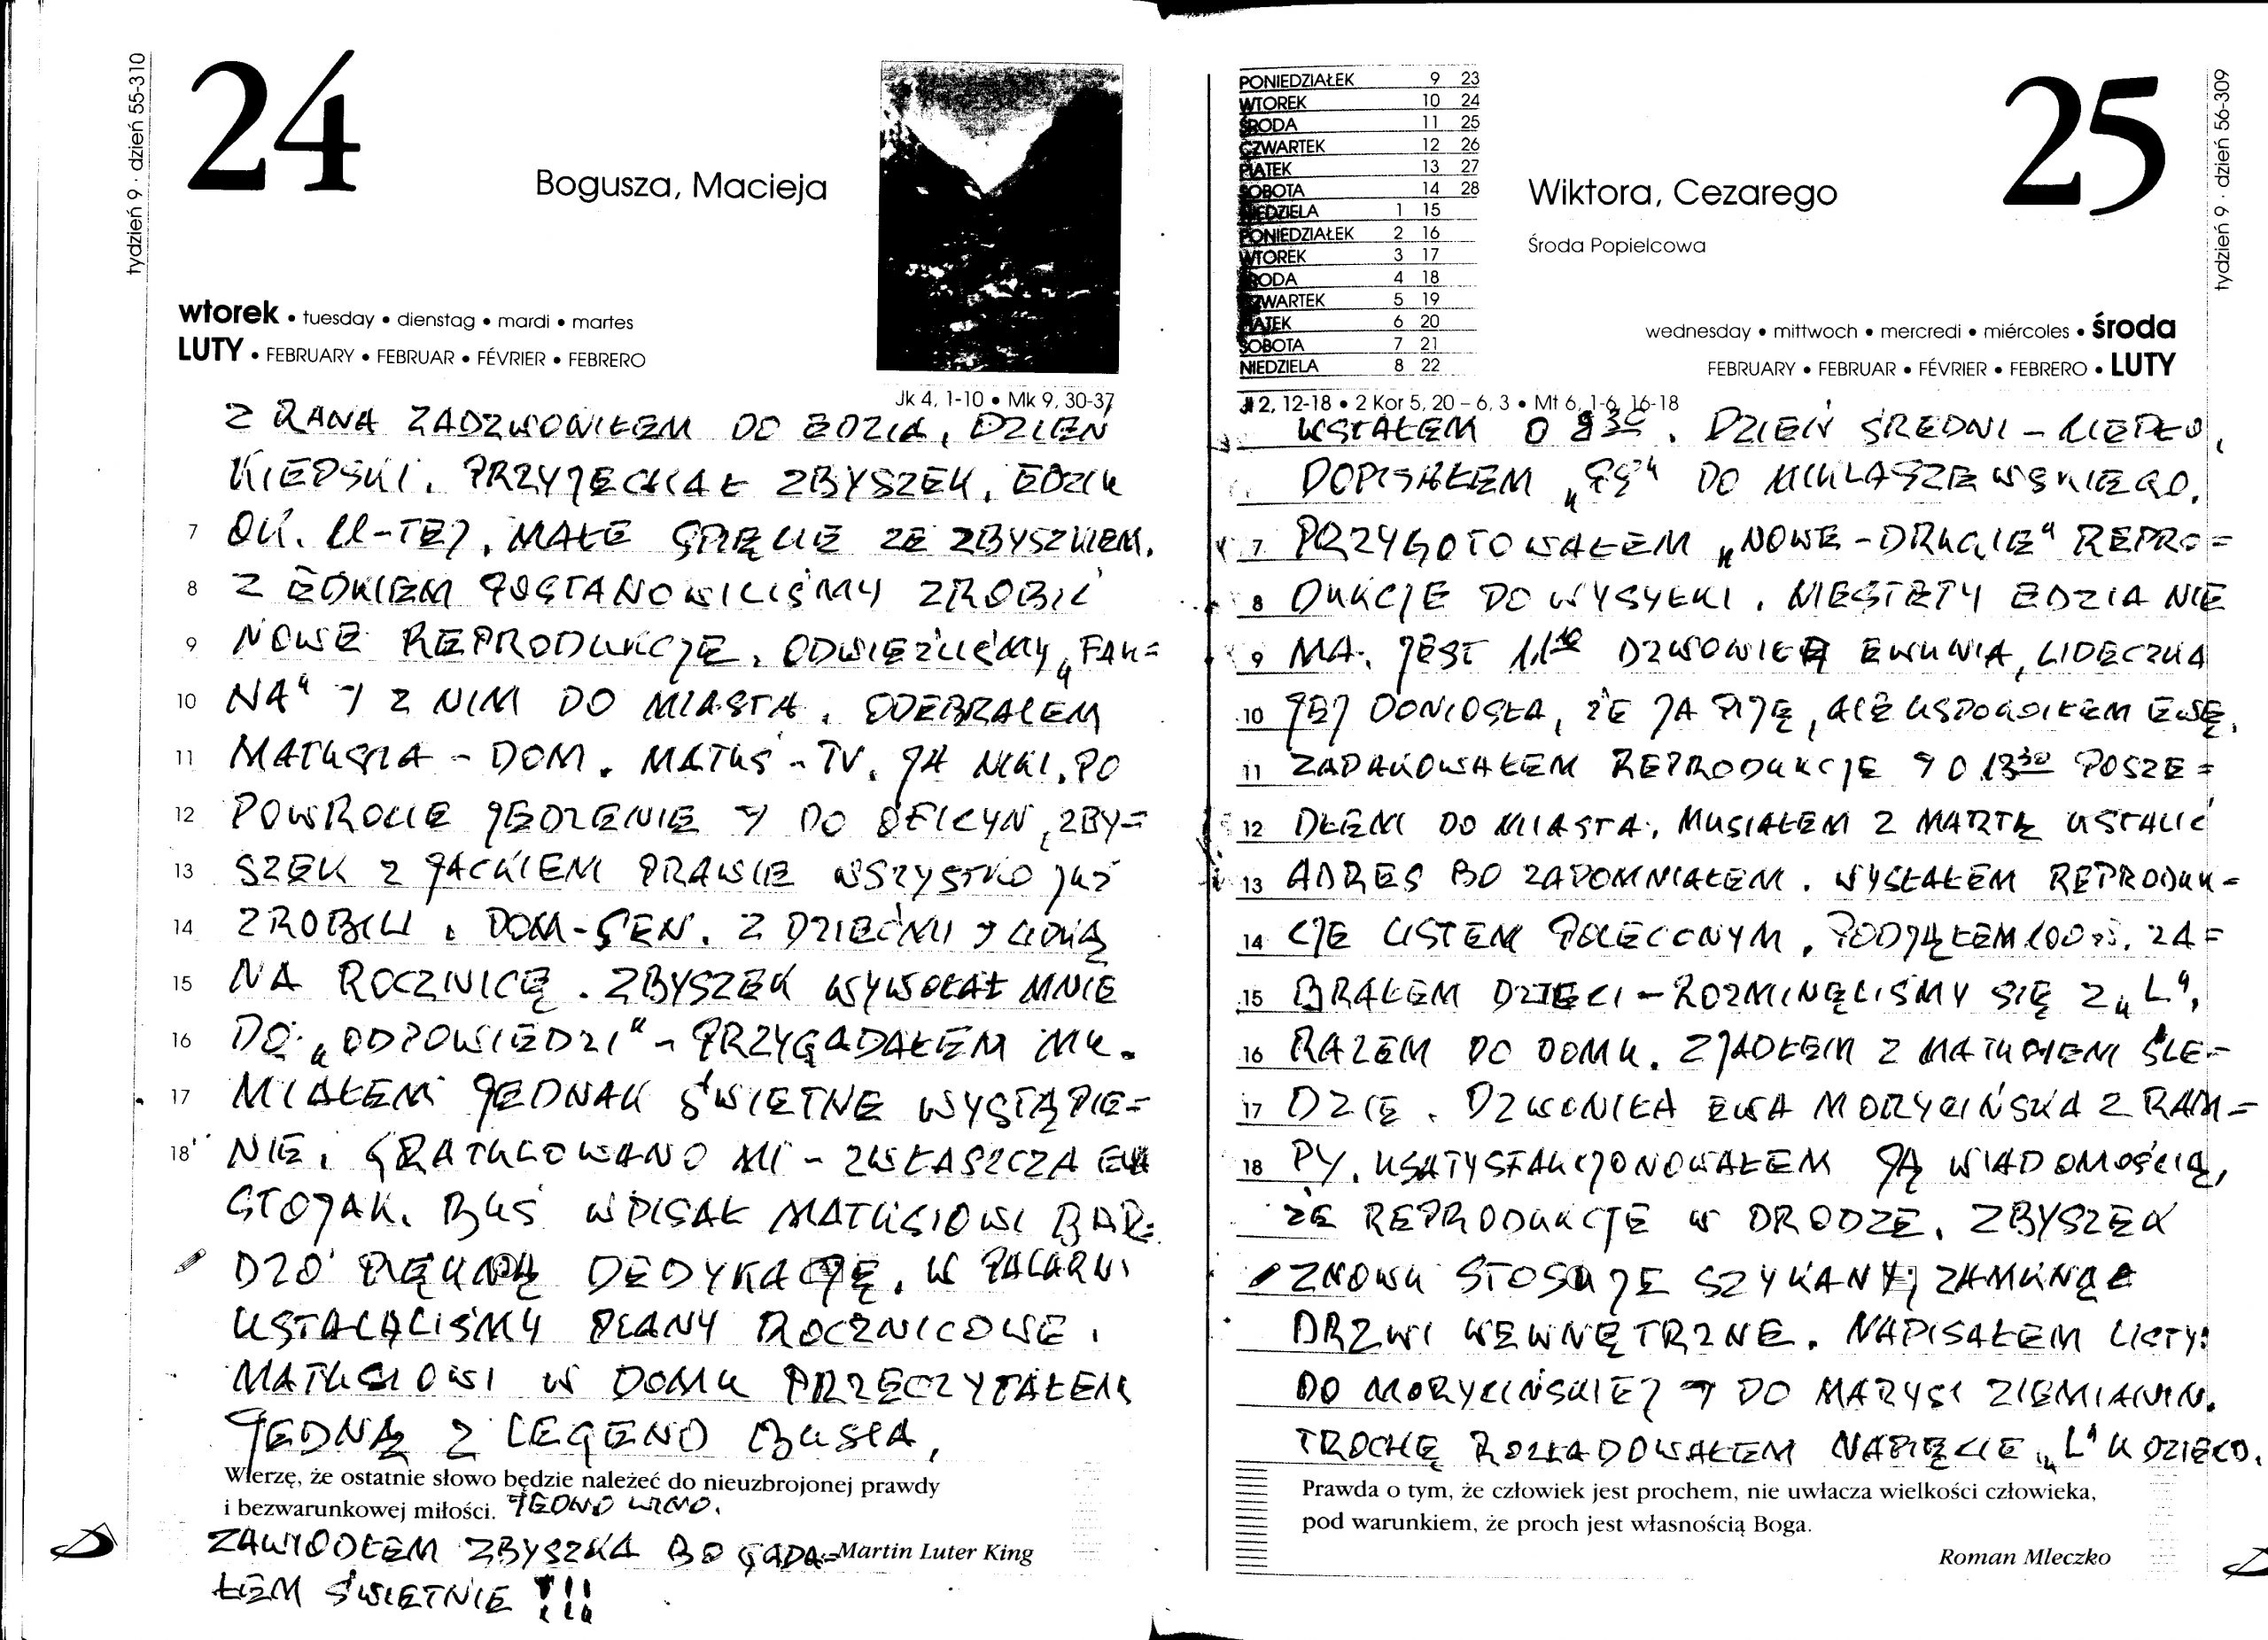 tydzień 9 · dzień 55-310
24
Bogusza, Macieja
wtorek • tuesday • dienstag • mardi • martes
LUTY • FEBRUARY • FEBRUAR • FÉVRIER • FEBRERO
Jk 4, 1-10 • Mk 9, 30-37
Z RANA ZADZWONIŁEM DO EDZIA, DZIEŃ
KIEPSKI. PRZYJECHAŁ ZBYSZEK, EDZIK
OK. 11-TEJ. MAŁE SPIĘCIE ZE ZBYSZKIEM.
7
Z EDKIEM POSTANOWILIŚMY ZROBIĆ
8
NOWE REPRODUKCJE. ODWIEŹLIŚMY „FAK=
9
NA" I Z NIM DO MIASTA. ODEBRAŁEM
10
MATUSIA - DOM. MATUŚ - TV. JA NIC. PO
11
POWROCIE JEDZENIE I DO OFICYN, ZBY=
12
SZEK Z JACKIEM PRAWIE WSZYSTKO JUŻ
13
ZROBILI. DOM-SEN. Z DZIEĆMI I LIDKĄ
14
NA ROCZNICĘ. ZBYSZEK WYWOŁAŁ MNIE
15
DO „ODPOWIEDZI" - PRZYGADAŁEM MU.
16
MIAŁEM JEDNAK ŚWIETNE WYSTĄPIE=
17
NIE. GRATULOWANO MI - ZWŁASZCZA EWA
18
STOJAK. BUŚ WPISAŁ MATUSIOWI BAR=
DZO PIĘKNĄ DEDYKACJĘ. W PACARNI
USTALALIŚMY PLANY ROCZNICOWE.
MATUSIOWI W DOMU PRZECZYTAŁEM
JEDNĄ Z LEGEND BUSIA,
Wierzę, że ostatnie słowo będzie należeć do nieuzbrojonej prawdy
i bezwarunkowej miłości.
JEDNO WINO.
ZAWIODŁEM ZBYSZKA BO GADA=
Martin Luter King
ŁEM ŚWIETNIE !!!
PONIEDZIAŁEK 9 23
WTOREK 10 24
ŚRODA 11 25
CZWARTEK 12 26
PIĄTEK 13 27
SOBOTA 14 28
NIEDZIELA 1 15
PONIEDZIAŁEK 2 16
WTOREK 3 17
ŚRODA 4 18
CZWARTEK 5 19
PIĄTEK 6 20
SOBOTA 7 21
NIEDZIELA 8 22
25
tydzień 9 · dzień 56-309
Wiktora, Cezarego
Środa Popielcowa
wednesday • mittwoch • mercredi • miércoles • środa
FEBRUARY • FEBRUAR • FÉVRIER • FEBRERO • LUTY
Jl 2, 12-18 • 2 Kor 5, 20 – 6, 3 • Mt 6, 1-6, 16-18
WSTAŁEM O 8 30. DZIEŃ ŚREDNI - CIEPŁO,
DOPISAŁEM „PS" DO MIKLASZEWSKIEGO.
7 PRZYGOTOWAŁEM „NOWE-DRUGIE" REPRO=
8 DUKCJE DO WYSYŁKI. NIESTETY EDZIA NIE
9 MA. JEST 11 10 DZWONIŁA EWUNIA, LIDECZKA
10 JEJ DONIOSŁA, ŻE JA PIJĘ, ALE USPOKOIŁEM EWĘ.
11 ZAPAKOWAŁEM REPRODUKCJE I O 13 30 POSZE=
12 DŁEM DO MIASTA. MUSIAŁEM Z MARTĄ USTALIĆ
13 ADRES BO ZAPOMNIAŁEM. WYSŁAŁEM REPRODUK=
14 CJE LISTEM POLECONYM. PODJĄŁEM 100 zł. ZA=
15 BRAŁEM DZIECI - ROZMINĘLIŚMY SIĘ Z „L",
16 RAZEM DO DOMU. ZJADŁEM Z MATUSIEM ŚLE=
17 DZIE. DZWONIŁA EWA MORYCIŃSKA Z RAM=
18 PY. USATYSFAKCJONOWAŁEM JĄ WIADOMOŚCIĄ,
ŻE REPRODUKCJE W DRODZE. ZBYSZEK
ZNOWU STOSUJE SZYKANY; ZAMKNĄŁ
DRZWI WEWNĘTRZNE. NAPISAŁEM LISTY:
DO MORYCIŃSKIEJ I DO MARYSI ZIEMIANIN.
TROCHĘ ROZŁADOWAŁEM NAPIĘCIE „L" U DZIECI.
Prawda o tym, że człowiek jest prochem, nie uwłacza wielkości człowieka,
pod warunkiem, że proch jest własnością Boga.
Roman Mleczko